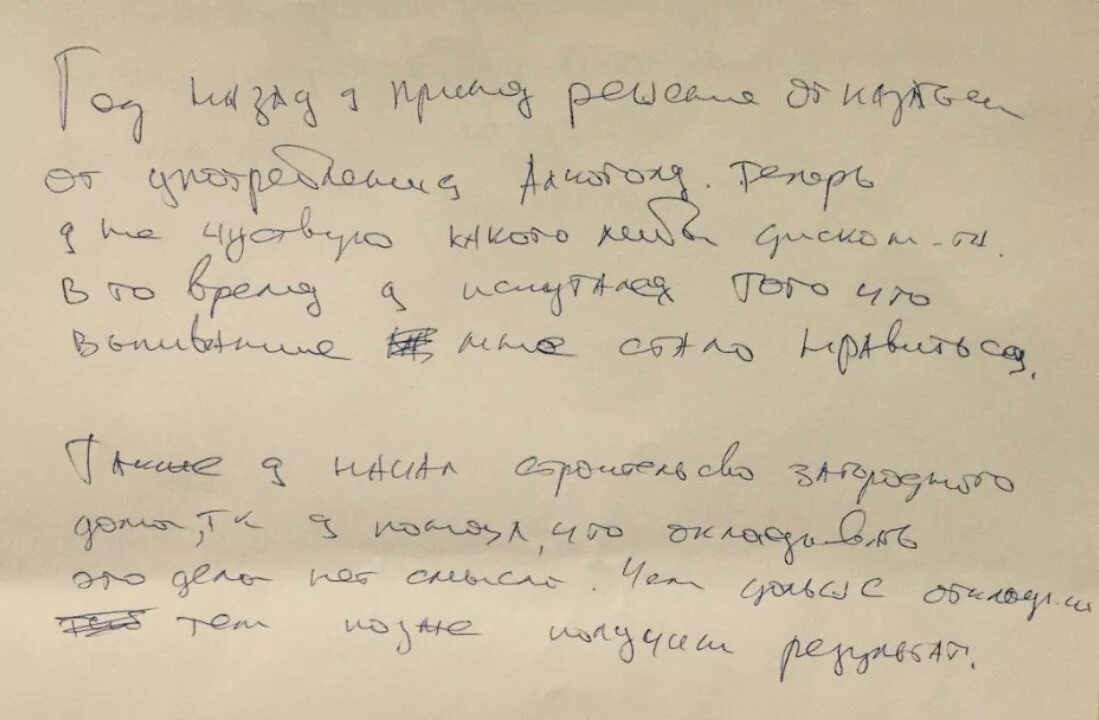 Год назад я принял решение отказаться
от употребления Алкоголя. Теперь
я не чуствую какого либо диском-та.
В то время я испугался того что
выпивание мне стало нравиться.
Также я начал строительсво загородного
дома, тк я понял, что откладывать
это дело нет смысла. Чем дольше откладыв.
тем позже получим результат.